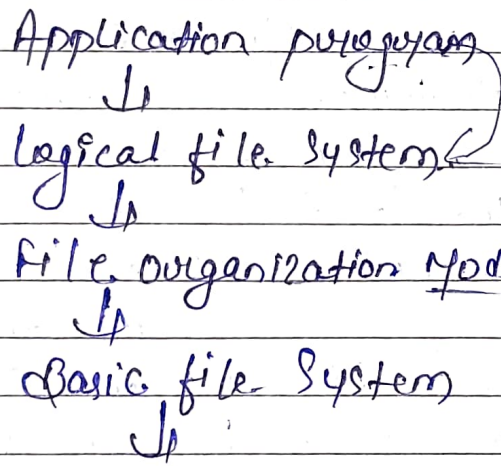 Application program
↓
Logical file System
↓
File organization Mod
↓
Basic file System
↓